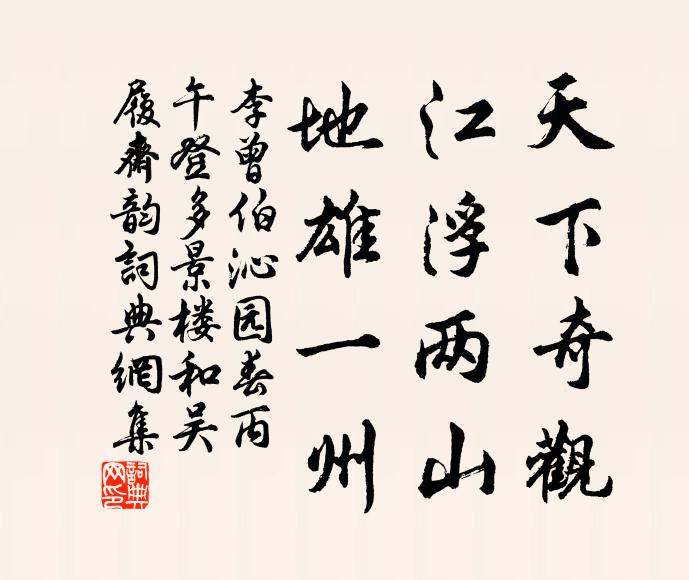 天下奇觀
江浮两山
地雄一州
李曾伯沁园春丙
午登多景楼和吴
履齋韵詞典網集
詞典
网印